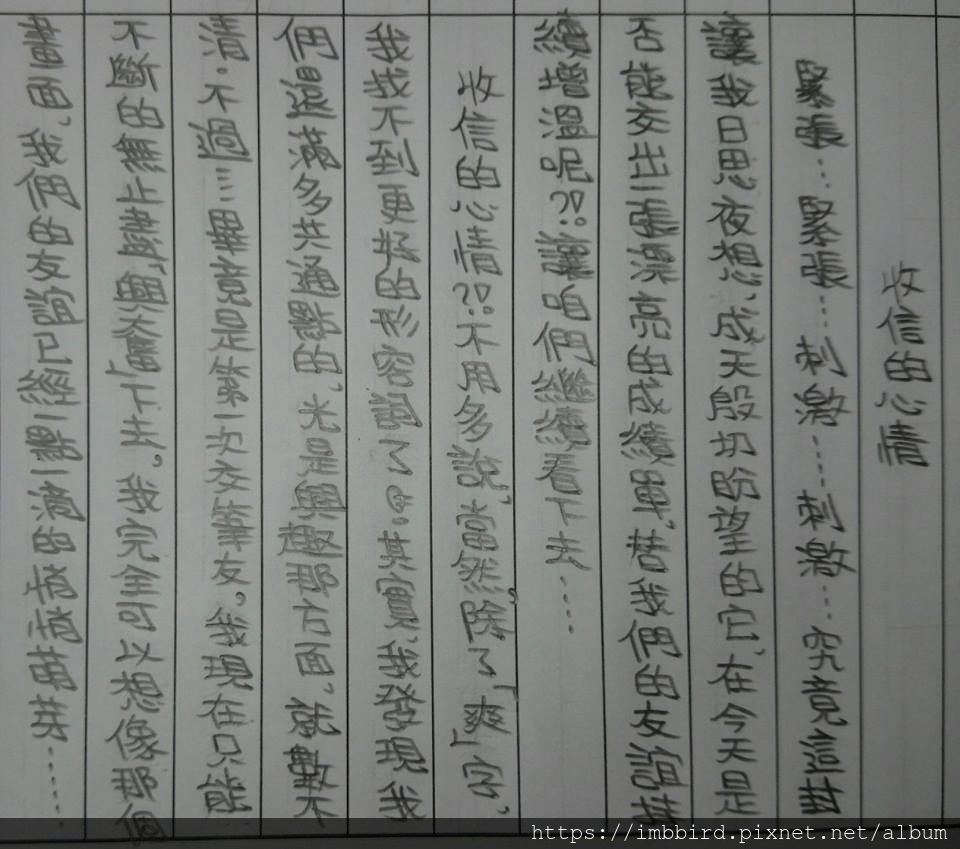 收信的心情
緊張…緊張……刺激……刺激…究竟這封
讓我日思夜想、成天殷切盼望的它，在今天是
否能交出一張漂亮的成績單，若我們的友誼持
續增溫呢?!。讓咱們繼續看下去……
收信的心情?!。不用多說，當然除了「爽」字，
我找不到更好的形容詞了。其實，我發現我
們還滿多共通點的，光是興趣那方面，就數不
清。不過…畢竟是第一次交筆友。我現在只能
不斷的無止盡「興奮」下去，我完全可以想像那個
畫面，我們的友誼已經一點一滴的悄悄萌芽……
https://imbbird.pixnet.net/album